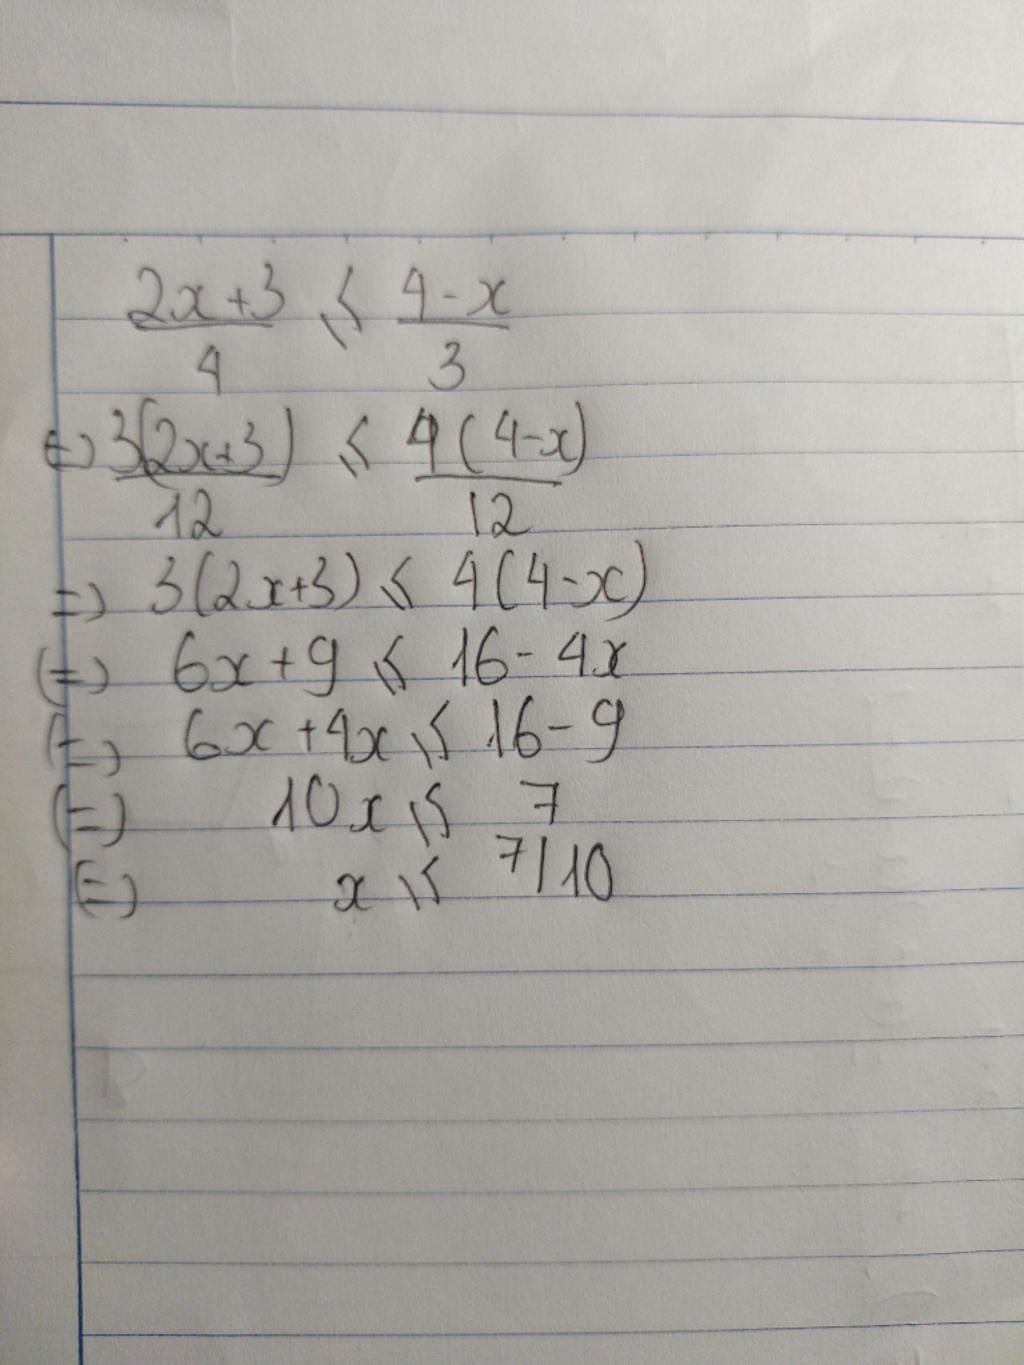 2x+3/4 ⩽ 4-x/3
(=) 3(2x+3)/12 ⩽ 4(4-x)/12
=) 3(2x+3) ⩽ 4(4-x)
(=) 6x+9 ⩽ 16-4x
(=) 6x+4x ⩽ 16-9
(=) 10x ⩽ 7
(=) x ⩽ 7/10